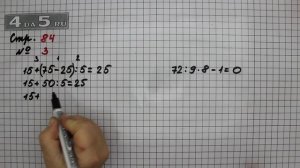 4ДА5.RU
Стр. 84
№ 3
3 1 2
15+(75-25):5=25
72:9·8-1=0
15+50:5=25
15+